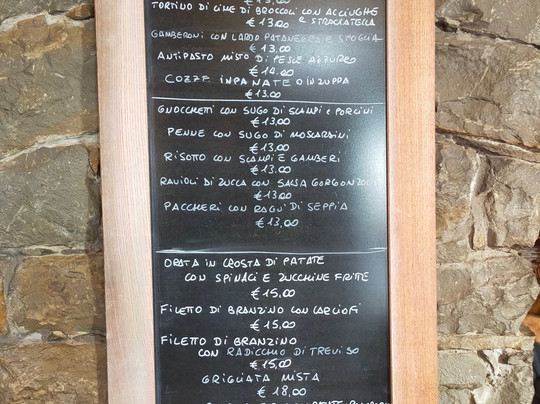 TORTINO DI CIME DI BROCCOLI CON ACCIUGHE
€ 13.00 E STRACCIATELLA
GAMBERONI CON LARDO PATANEGRA E SFOGLIA
€ 13,00
ANTIPASTO MISTO DI PESCE AZZURRO
€ 14.00
COZZE IMPANATE O IN ZUPPA
€ 13.00
GNOCCHETTI CON SUGO DI SCAMPI E PORCINI
€ 13,00
PENNE CON SUGO DI MOSCARDINI
€ 13.00
RISOTTO CON SCAMPI E GAMBERI
€ 13.00
RAVIOLI DI ZUCCA CON SALSA GORGONZOLA
€ 13.00
PACCHERI CON RAGÙ DI SEPPIA
€ 13,00
ORATA IN CROSTA DI PATATE
CON SPINACI E ZUCCHINE FRITTE
€ 15,00
FILETTO DI BRANZINO CON CARCIOFI
€ 15,00
FILETTO DI BRANZINO
CON RADICCHIO DI TREVISO
€ 15,00
GRIGLIATA MISTA
€ 18,00